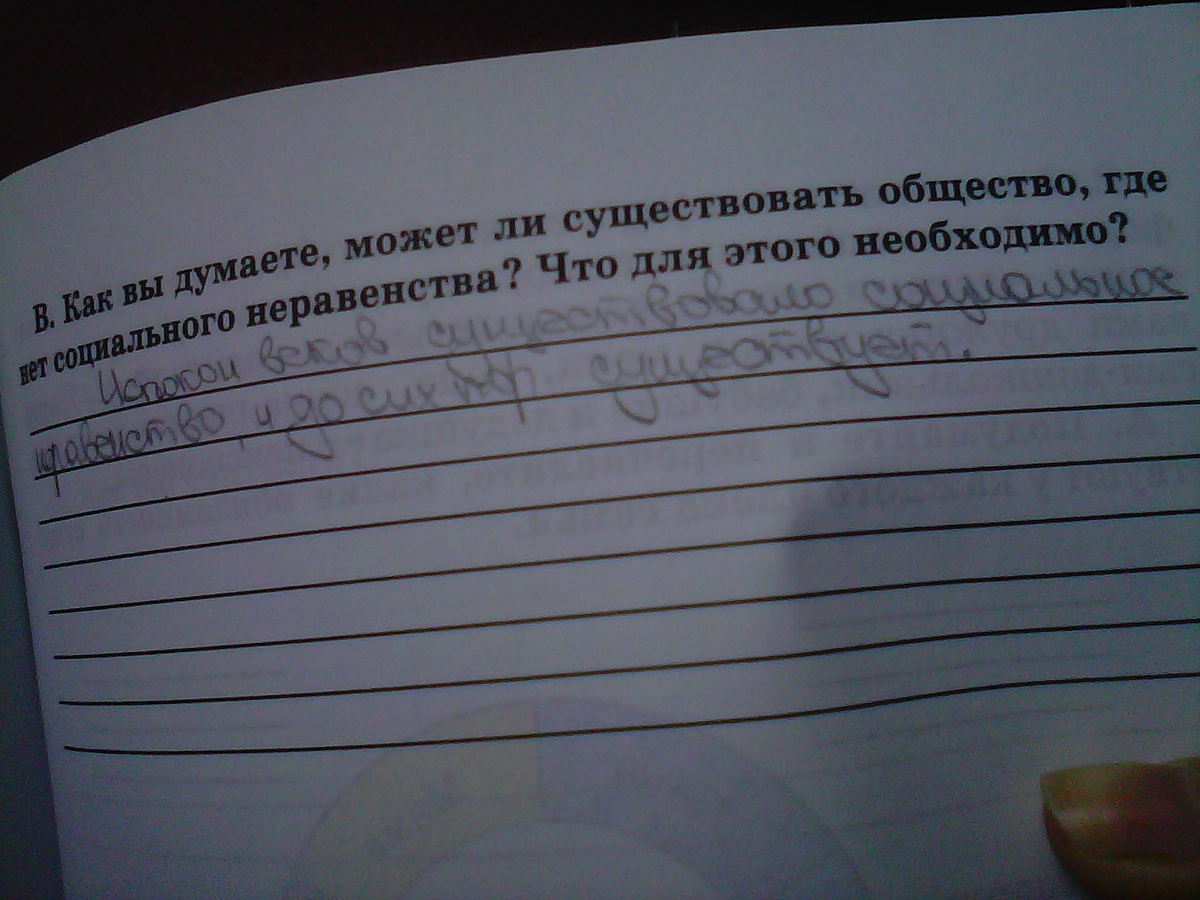 В. Как вы думаете, может ли существовать общество, где
нет социального неравенства? Что для этого необходимо?
Испокон веков существовало социальное
нравенство, и до сих пор существует.